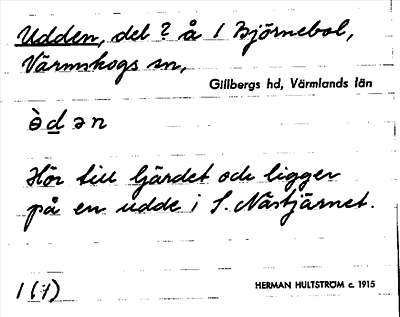 Udden, del ? å 1 Björnebol,
Värmskogs sn,
Gillbergs hd, Värmlands län
ò d ə n
Hör till Gärdet och ligger
på en udde i S. Nästjärnet.
1 (1)
HERMAN HULTSTRÖM c. 1915